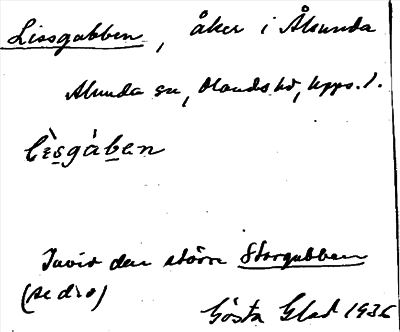 Lissgubben, åker i Ålsunda
Alunda sn, Olands hd, Upps. l.
lìsgáben
Invid den större Storgubben
(se d:o)
Gösta Elad 1936